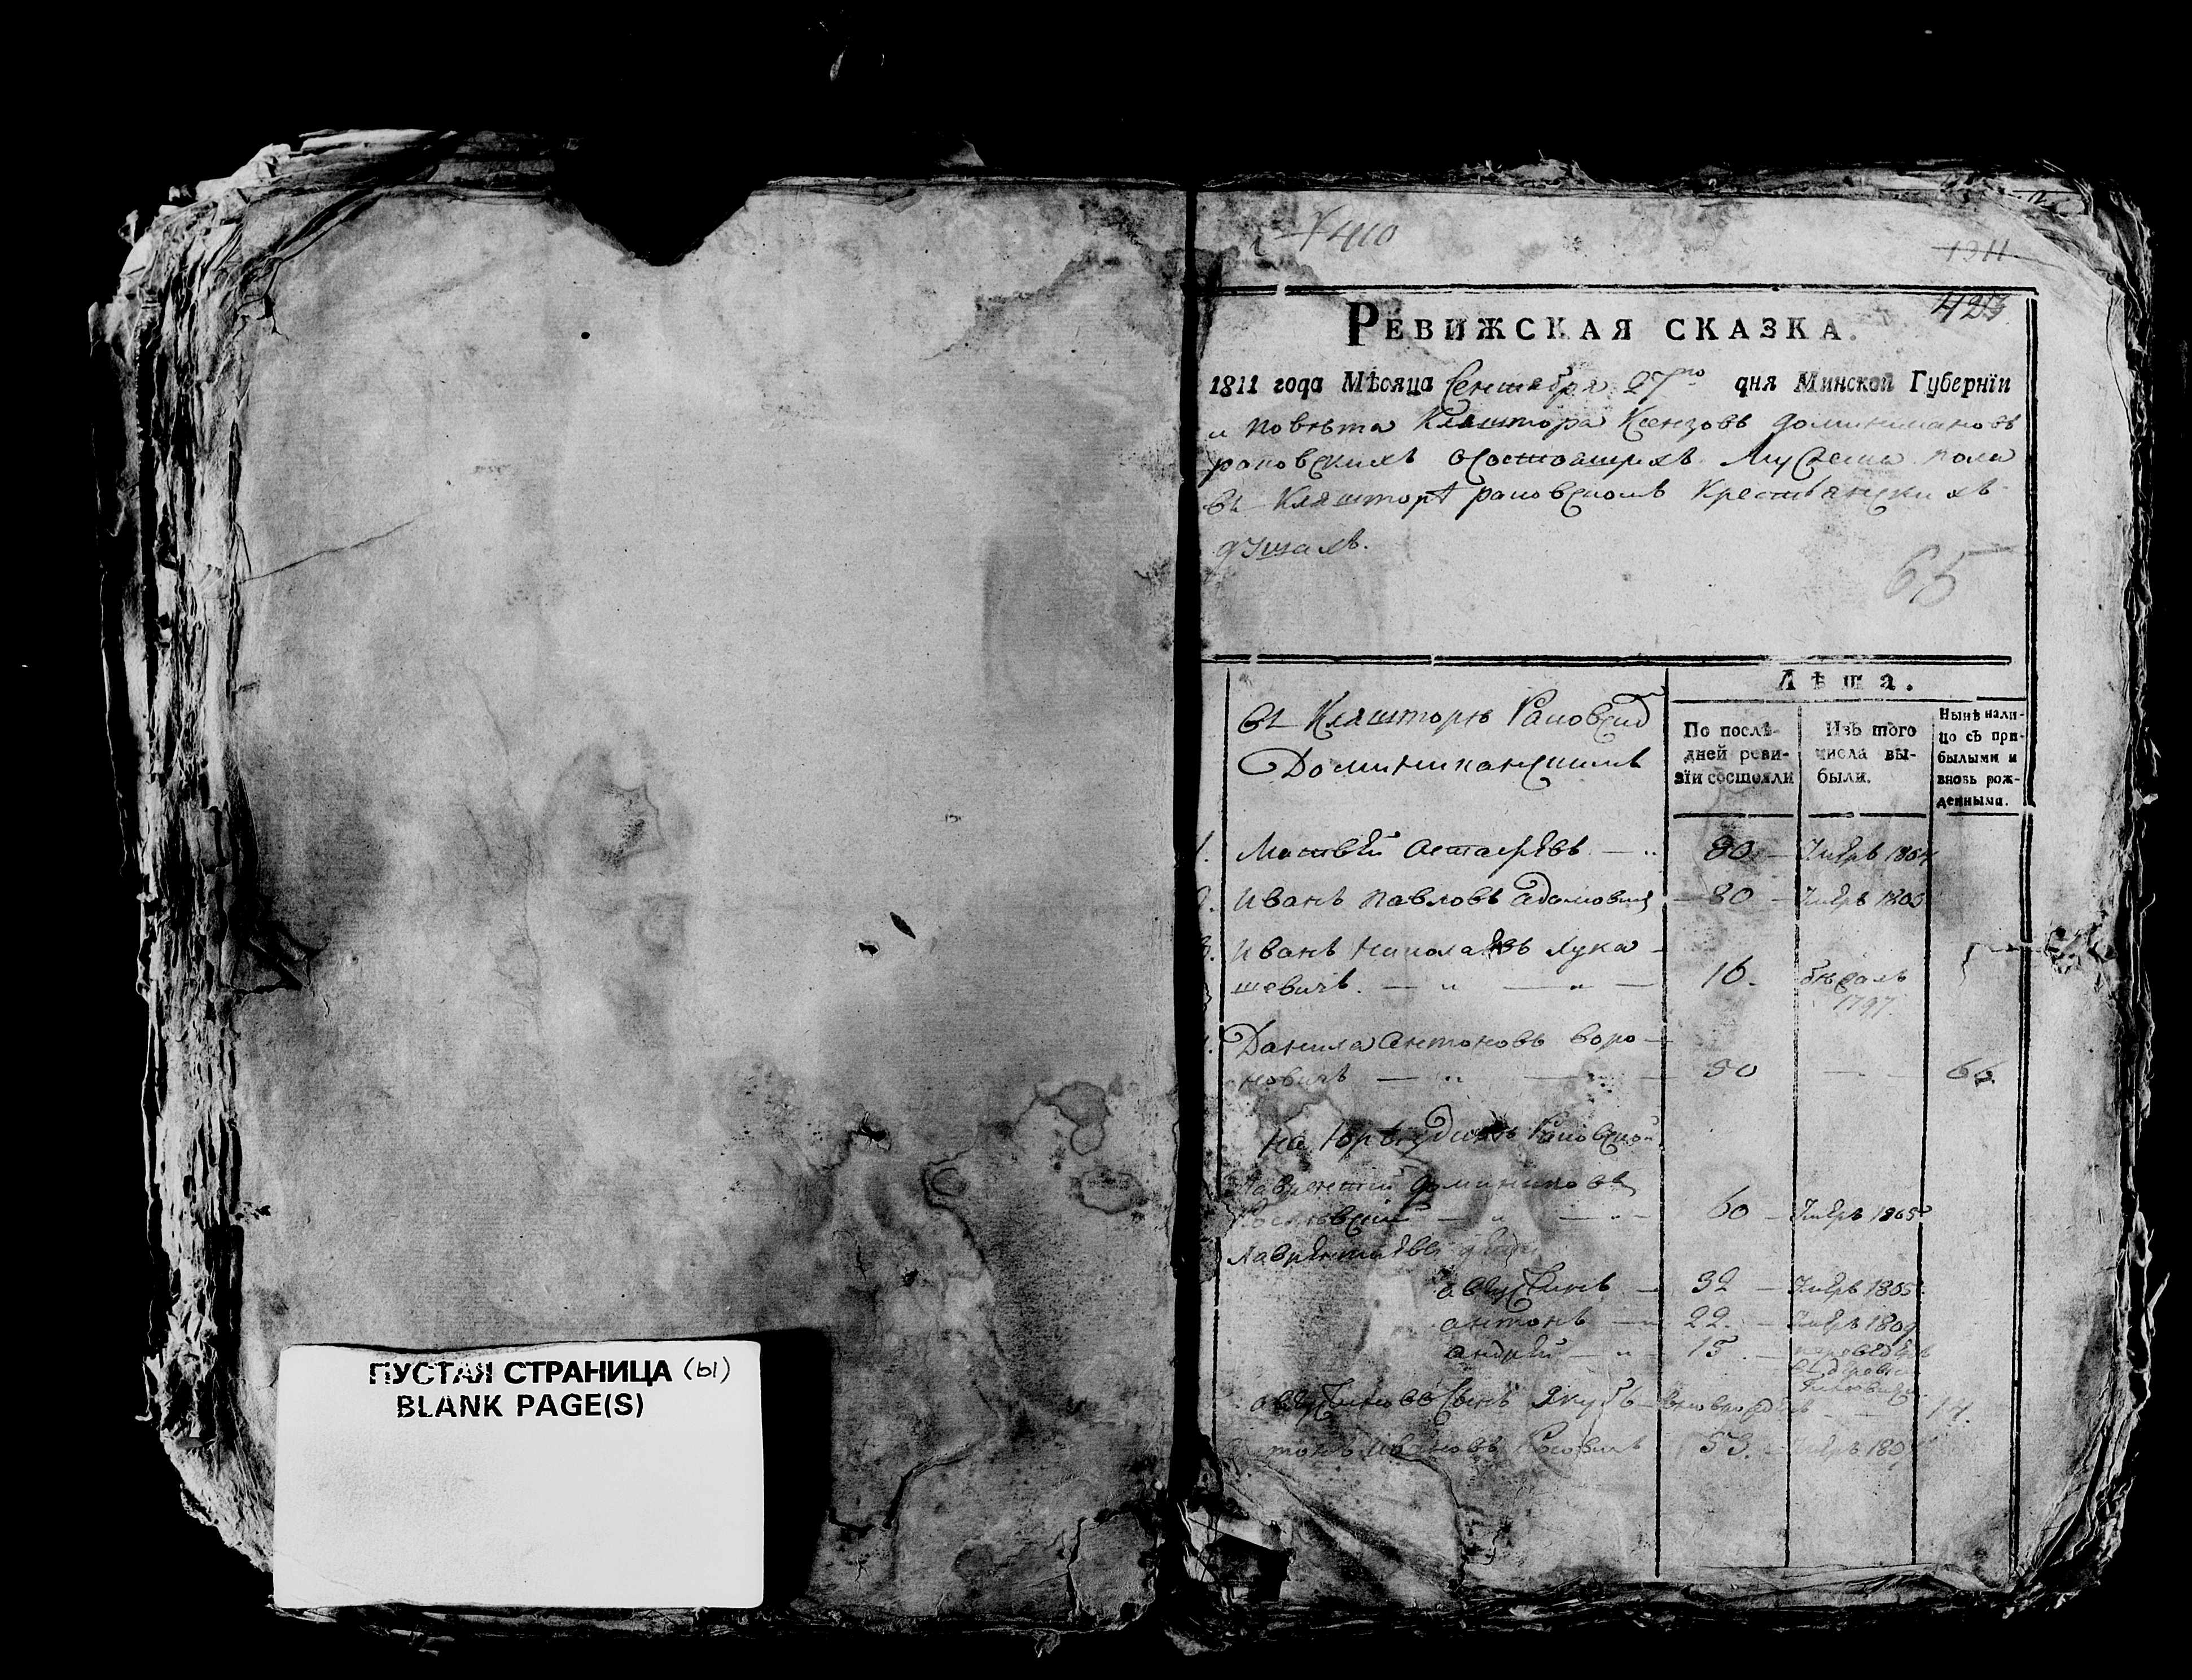 ПУСТАЯ СТРАНИЦА (ы)
BLANK PAGE(S)
410
1311.
РЕВИЖСКАЯ СКАЗКА.
1811 года Мѣсяца Сентября 27го дня Минской Губернїи
и повѣта Кляштора Ксензовъ доминикановъ
раковскихъ осостоящихъ Мужеска пола
въ Кляшторѣ раковскомъ Крестьянскихъ
душахъ.
65
въ Кляшторѣ Раковском
Доминиканскимъ
Лѣта.
По послѣдней ревизїи состояли
Изъ того числа выбыли.
Нынѣ налицо съ прибылыми и вновь рожденными.
1. Матвѣй Астафьевъ 80 Умеръ 1804
Иванъ Павловъ Адамовичъ 80 Умеръ 1803
3. Иванъ Николаевъ Лука-
шевичъ. 16. бѣжалъ
1797
Данила Антоновъ Воро-
новичъ 50 66.
На Юрѣздикѣ Раковской
Лаврентий Доминиковъ
60 Умеръ 1805
Лаврентиевы дети
Августинъ 32 Умеръ 1805
Антонъ 22. Умеръ 1809
Андрей 15
Августиновъ Сынъ Якубъ 14.
Ивановъ 53. Умеръ